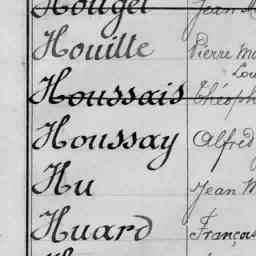 Houget Jean
Houitte Pierre
Lou
Houssais Théoph
Houssay Alfred
Hu Jean M
Huard François